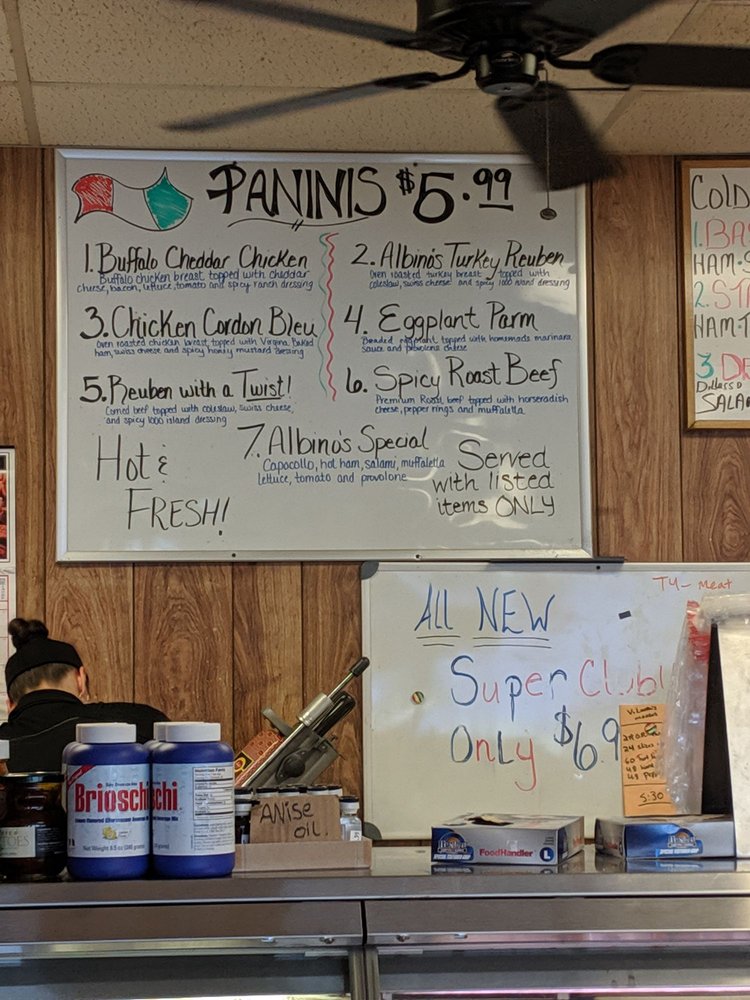 PANINIS $5.99
1. Buffalo Cheddar Chicken
Buffalo chicken breast topped with cheddar
cheese, bacon, lettuce, tomato and spicy ranch dressing
2. Albino's Turkey Reuben
Oven roasted turkey breast topped with
coleslaw, swiss cheese and spicy 1000 island dressing
3. Chicken Cordon Bleu
Oven roasted chicken breast, topped with Virginia baked
ham, swiss cheese and spicy honey mustard dressing
4. Eggplant Parm
Breaded eggplant topped with homemade marinara
sauce and provolone cheese
5. Reuben with a Twist!
Corned beef topped with coleslaw, swiss cheese,
and spicy 1000 island dressing
6. Spicy Roast Beef
Premium Roast beef topped with horseradish
cheese, pepper rings and muffaletta
7. Albino's Special
Capocollo, hot ham, salami, muffaletta
lettuce, tomato and provolone
Hot &
FRESH!
Served
with listed
items ONLY
Cold
1. BA
HAM
2. ST
HAM
3. DE
SALA
ALL NEW
Super Club
Only $6.9
24 slices
5:30
Brioschi
Net Weight 8.5 oz
ANISE
OIL.
FoodHandler
L